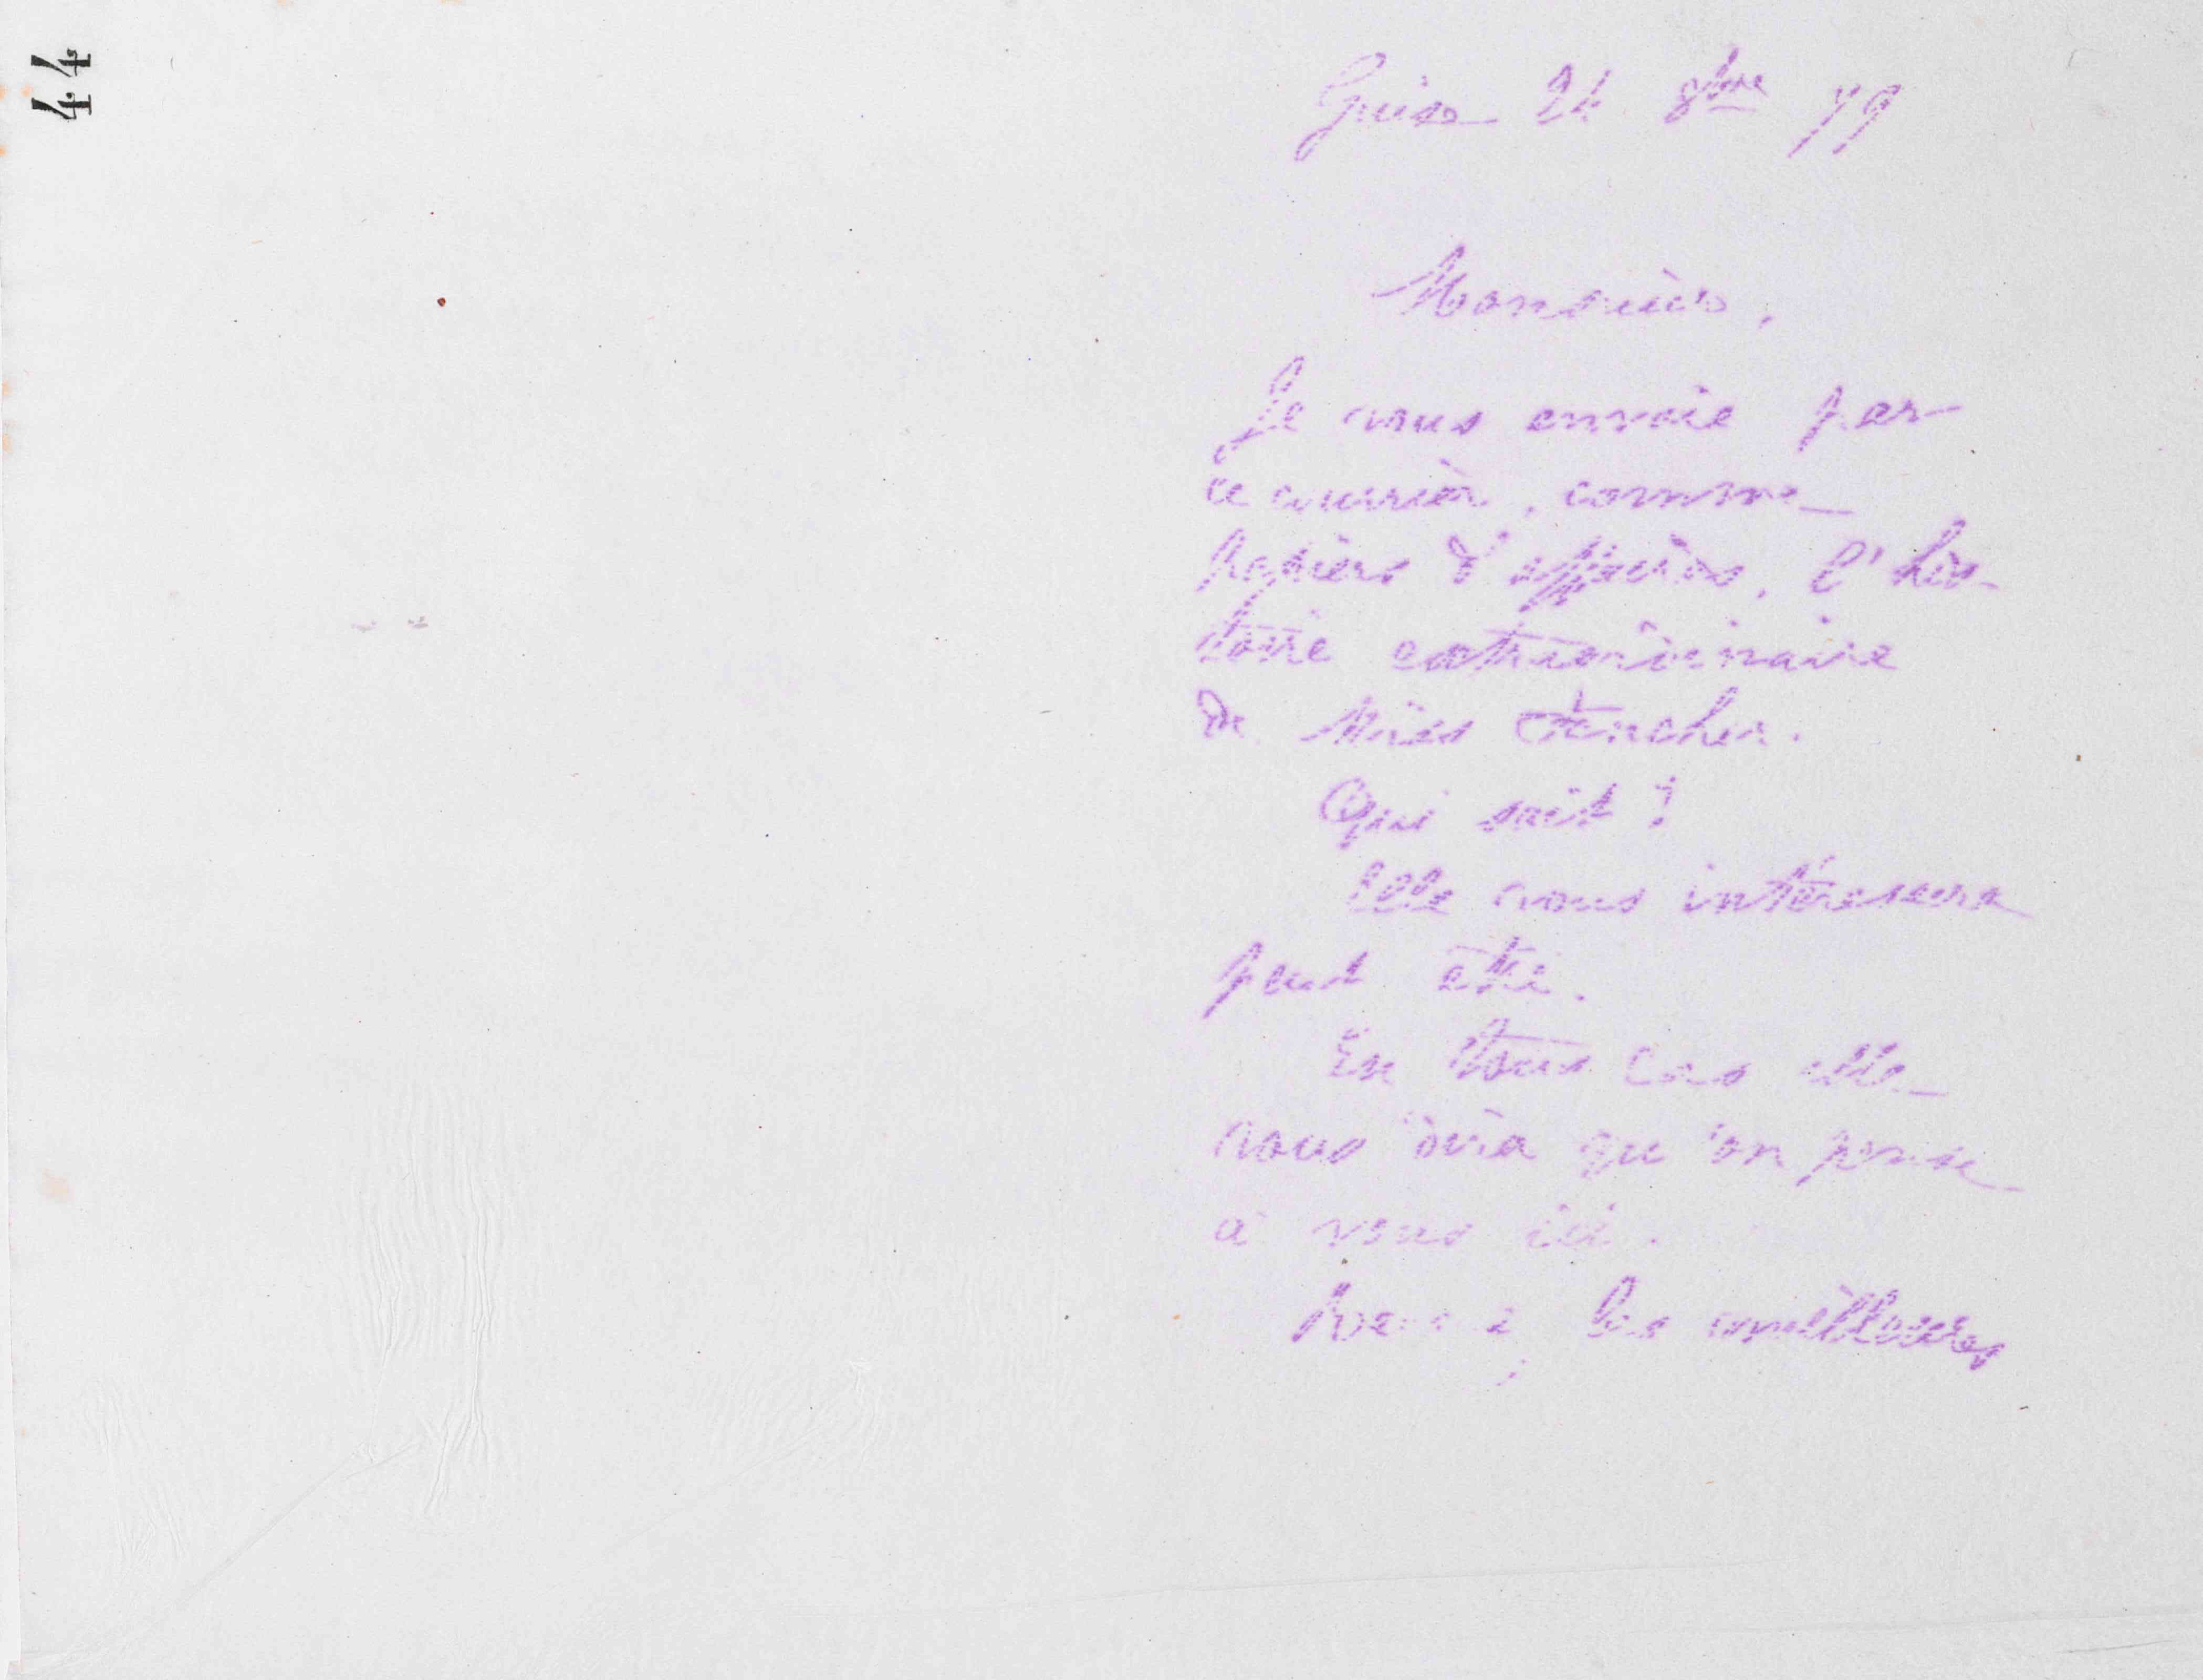 44
Guise 24 8bre 79
Monsieur,
Je vous envoie par
ce courrier, comme
papiers d'affaires, l'his-
toire extraordinaire
de Miss Fancher.
Qui sait !
Elle vous intéressera
peut être.
En tous cas elle
vous dira qu'on pense
à vous ici.
les meilleures